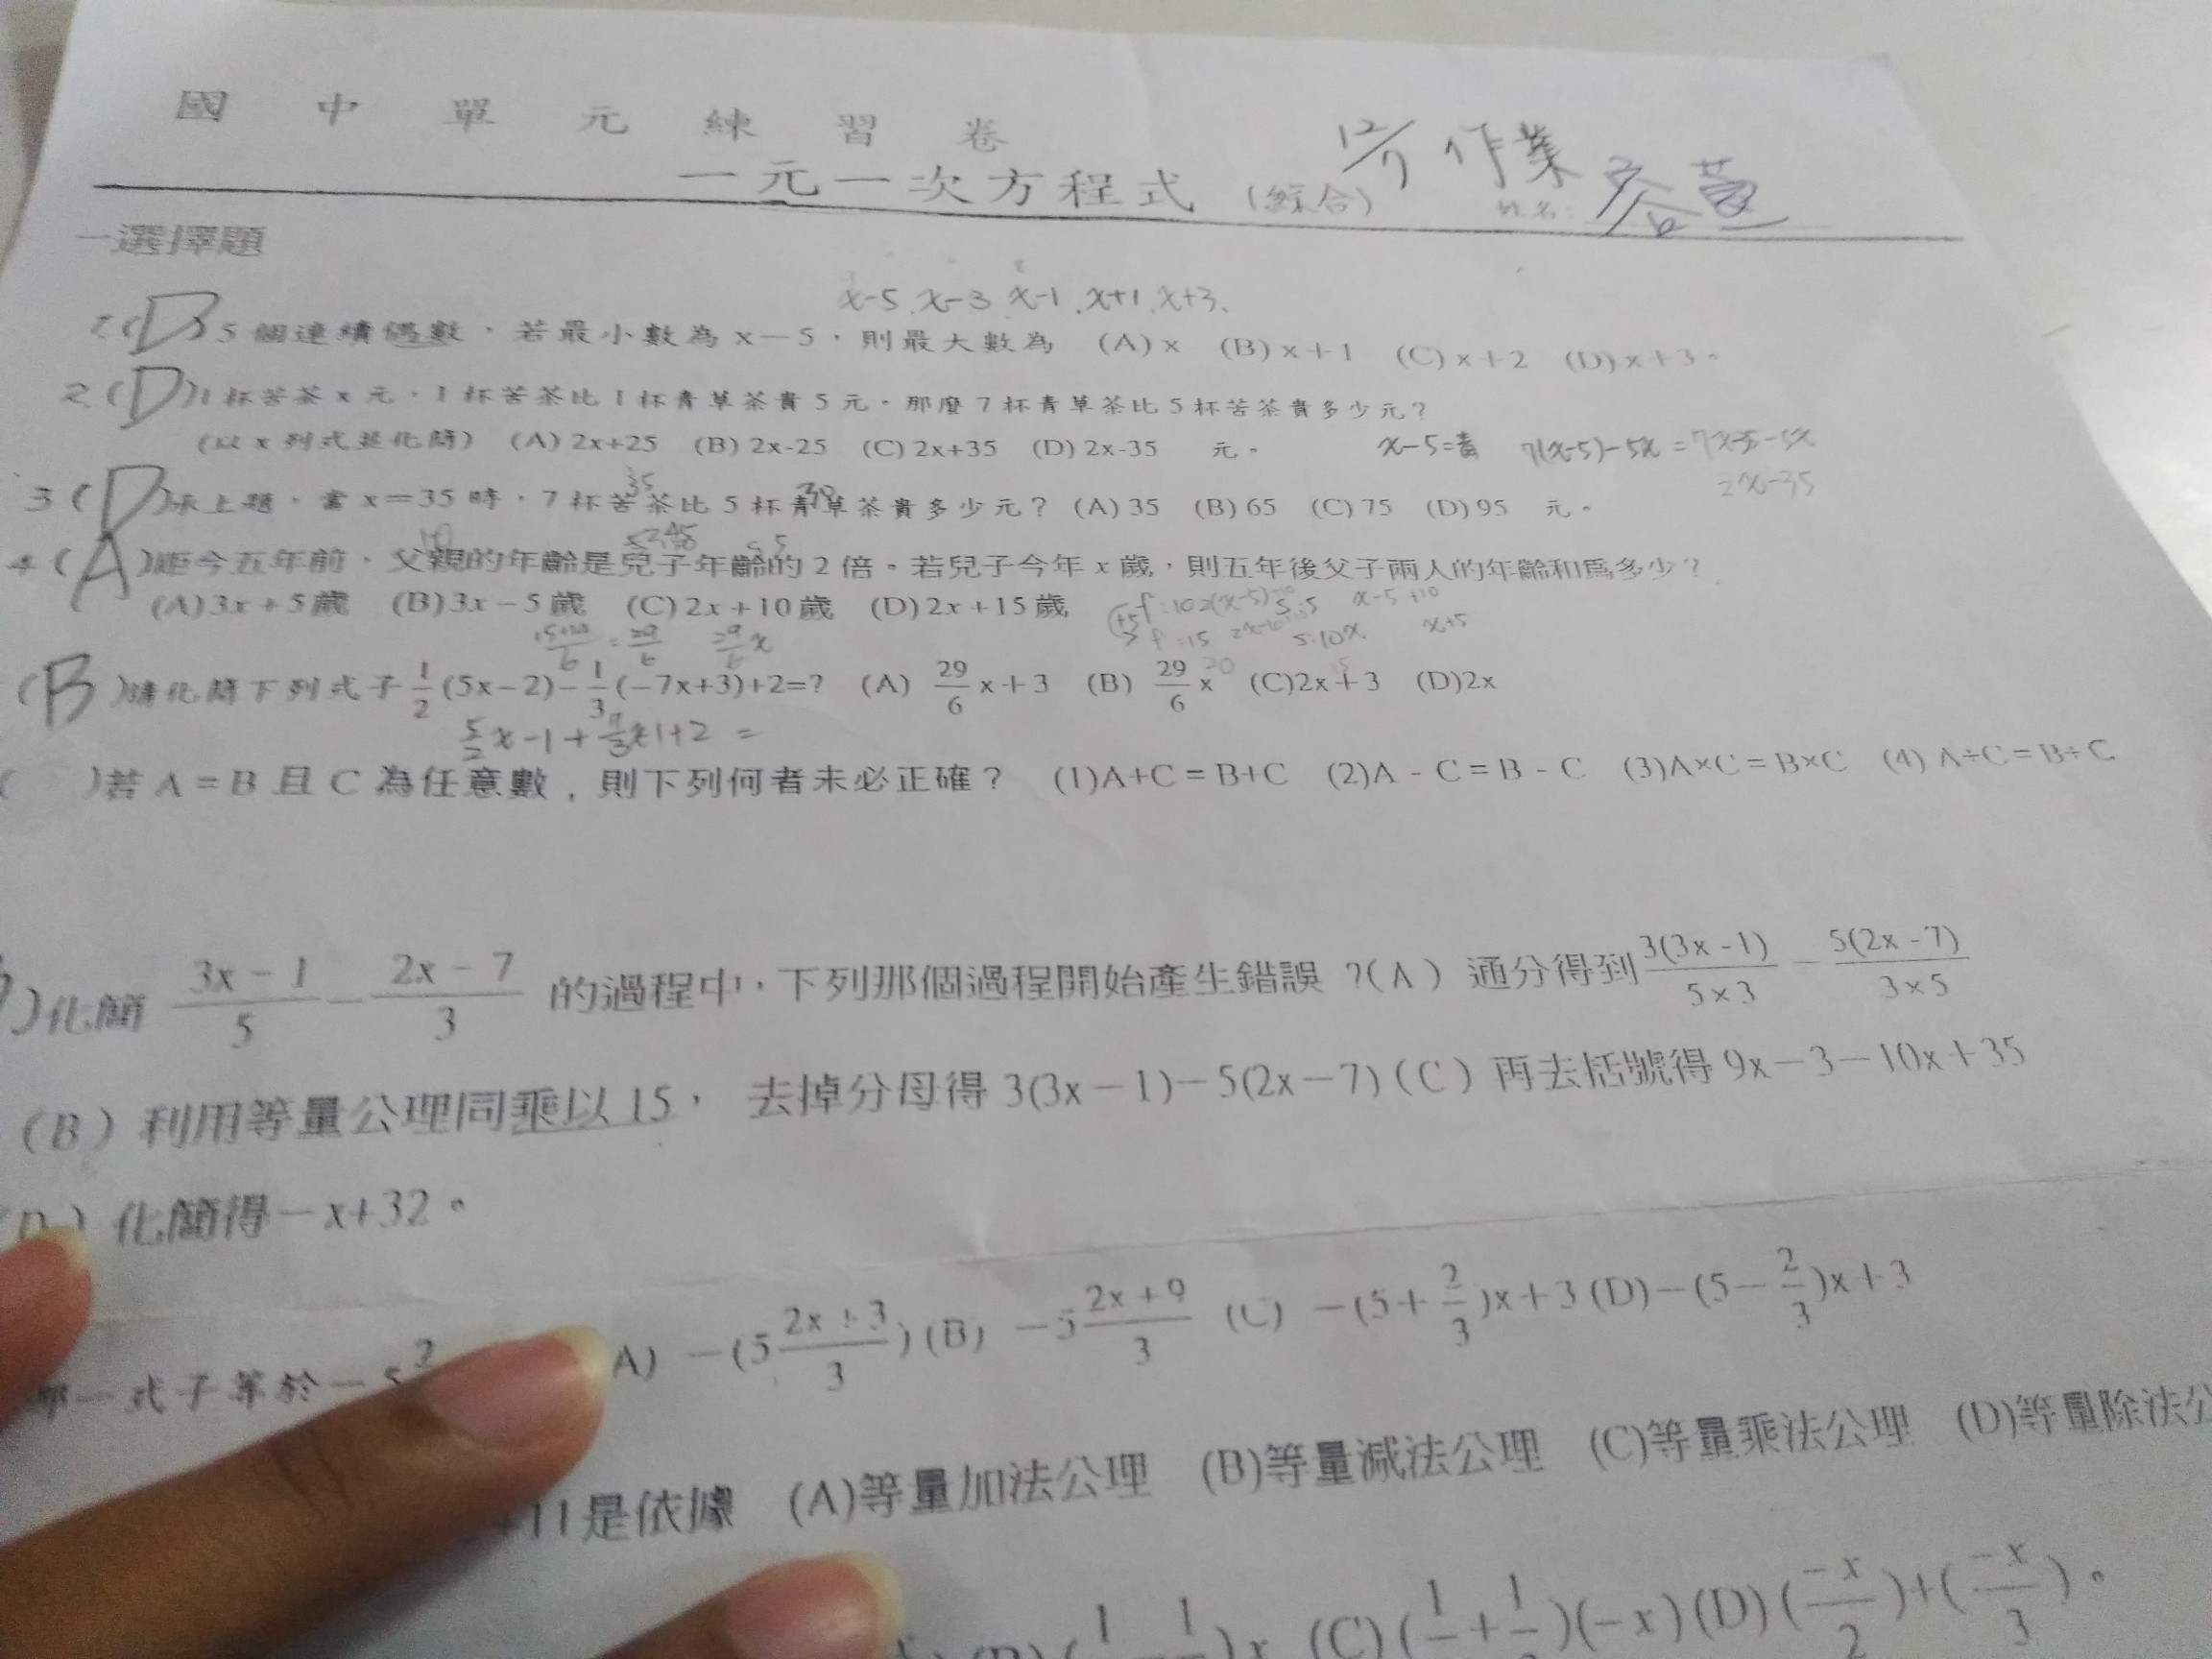 國中單元練習卷
一元一次方程式 (綜合) 12/7 作業 姓名:
一選擇題
x-5.x-3 x-1.x+1.x+3.
1.(D)5個連續偶數，若最小數為x－5，則最大數為 (A)x (B)x+1 (C)x+2 (D)x+3。
2.(D)1杯苦茶x元，1杯苦茶比1杯青草茶貴5元。那麼7杯青草茶比5杯苦茶貴多少元？
(以x列式並化簡) (A)2x+25 (B)2x-25 (C)2x+35 (D)2x-35 元。 x-5=青 7(x-5)-5x=7x-35-5x
2x-35
35 30
3(D)承上題，當x＝35時，7杯苦茶比5杯青草茶貴多少元？ (A)35 (B)65 (C)75 (D)95 元。
4(A)距今五年前，父親的年齡是兒子年齡的2倍。若兒子今年x歲，則五年後父子兩人的年齡和爲多少？
(A)3x+5歲 (B)3x－5歲 (C)2x+10歲 (D)2x+15歲 x-5+10
x+5
29/6 x
(B)請化簡下列式子 1/2(5x－2)－1/3(－7x+3)+2=? (A) 29/6 x+3 (B) 29/6 x (C)2x+3 (D)2x
5/2 x-1+7/3 x-1+2=
( )若A=B且C為任意數，則下列何者未必正確？ (1)A+C=B+C (2)A-C=B-C (3)A×C=B×C (4)A÷C=B÷C
)化簡 (3x-1)/5 － (2x-7)/3 的過程中，下列那個過程開始產生錯誤？(A) 通分得到 3(3x-1)/(5×3) － 5(2x-7)/(3×5)
(B) 利用等量公理同乘以15， 去掉分母得3(3x－1)－5(2x－7) (C) 再去括號得9x－3－10x+35
(D) 化簡得－x+32。
那一式子等於－5 A) －(5 (2x+3)/3) (B) －5 (2x+9)/3 (C) －(5+2/3)x+3 (D)－(5－2/3)x+3
11是依據 (A)等量加法公理 (B)等量減法公理 (C)等量乘法公理 (D)等量除法公
(C) (－x) (D) (－x/2)+(－x/3)。